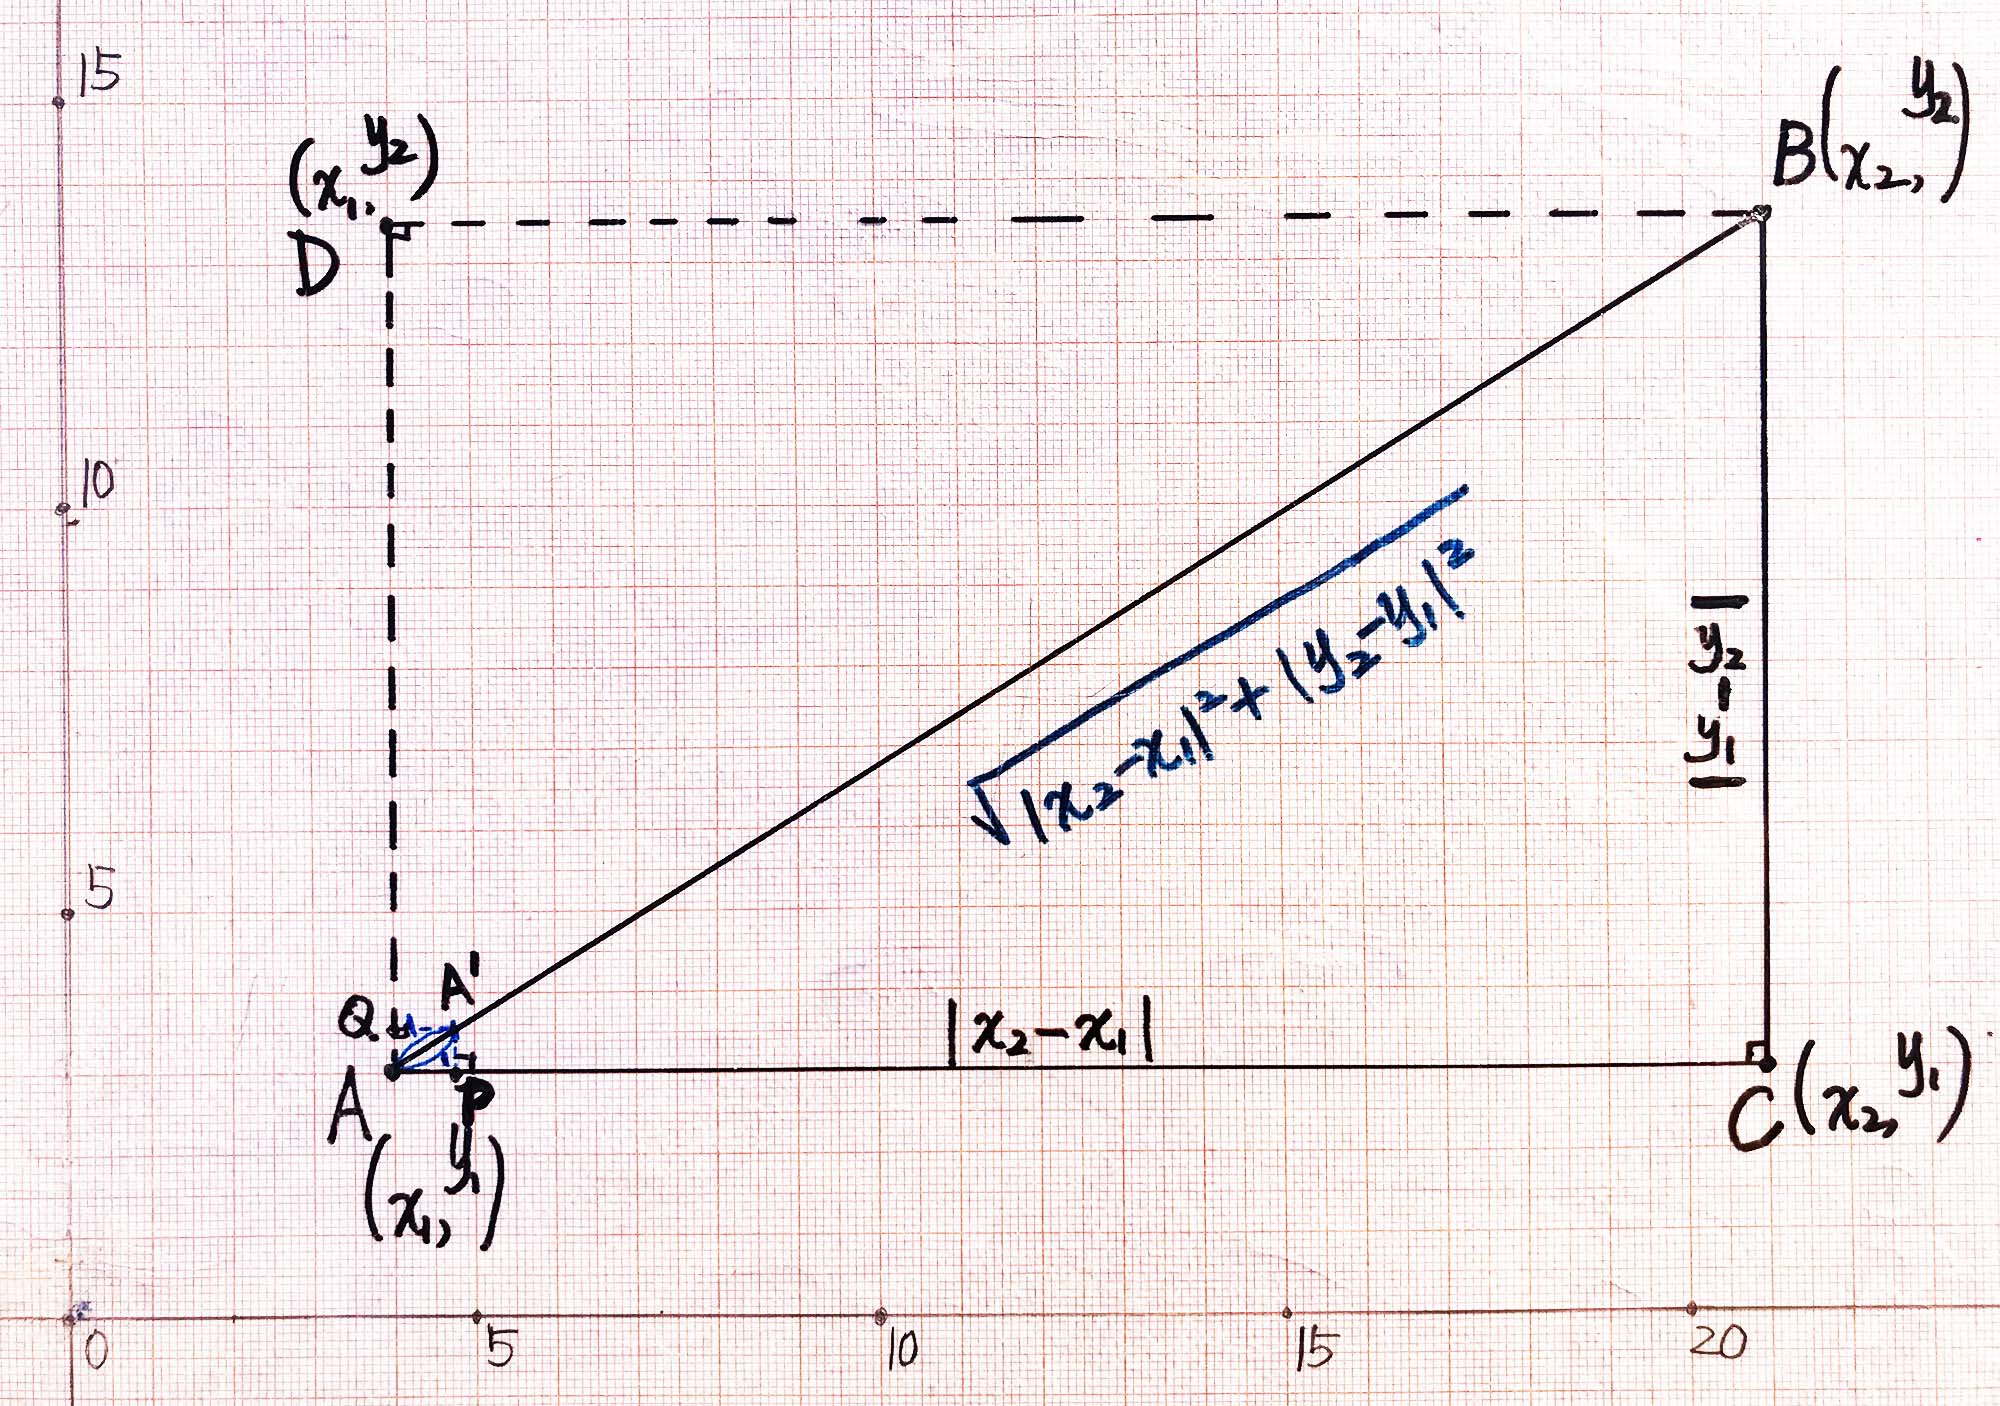 15
B(x₂, y₂)
(x₁, y₂)
D
10
√|x₂-x₁|²+|y₂-y₁|²
|y₂-y₁|
5
A'
Q
|x₂-x₁|
A
P
(x₁, y₁)
C(x₂, y₁)
0
5
10
15
20